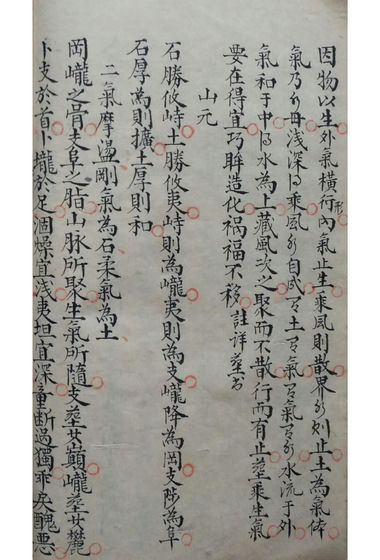 因物以生外氣橫行形內氣止生乘風則散界水則止土為氣体
氣乃水母浅深得乘風水自成有土有氣有氣有水流于外
氣和于中得水為上藏風次之聚而不散行而有止葬乘生氣
要在得宜巧眸造化祸福不移註详葬书
山元
石勝攸峙土勝攸夷峙則為巄夷則為支巄降為岡支陟為阜
石厚為則擴土厚則和
二氣摩盪剛氣為石柔氣為土
岡巄之骨支阜之脂山脉所聚生氣所隨支葬其巔巄葬其麓
卜支於首卜巄於足涸燥宜浅夷坦宜深童断過獨乖戾醜惡